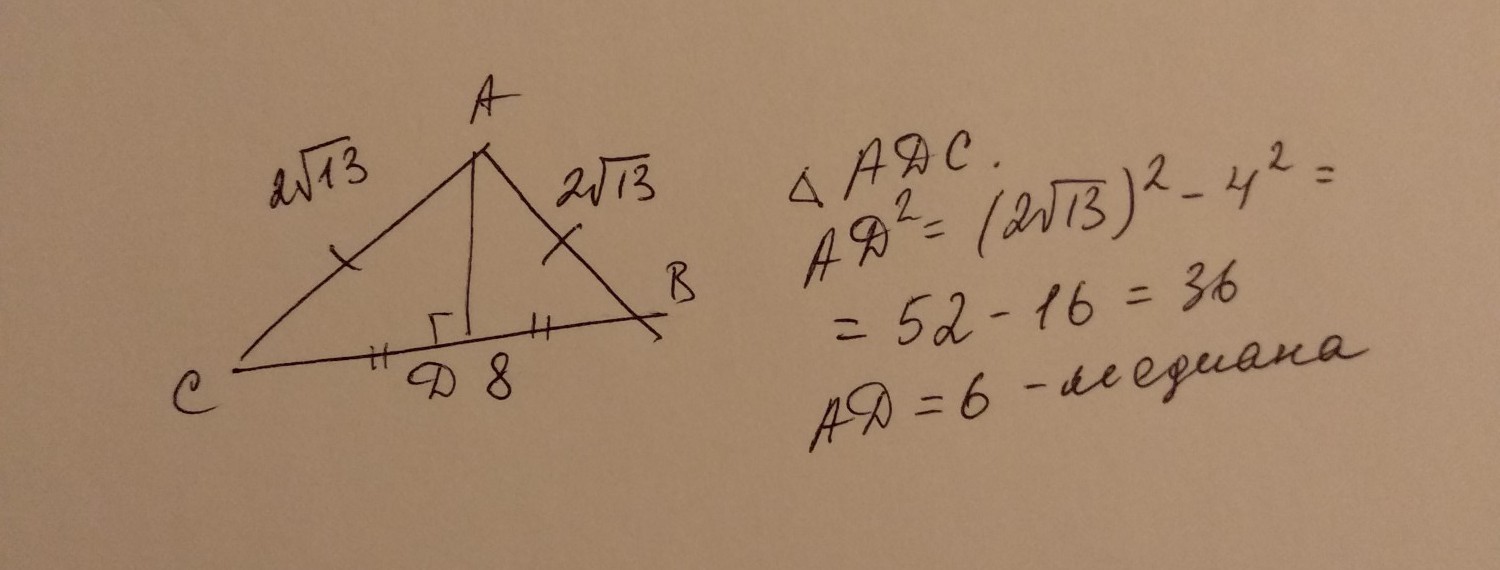 A
2√13
2√13
B
C
D 8
△ ADC.
AD² = (2√13)² - 4² =
= 52 - 16 = 36
AD = 6 - медиана